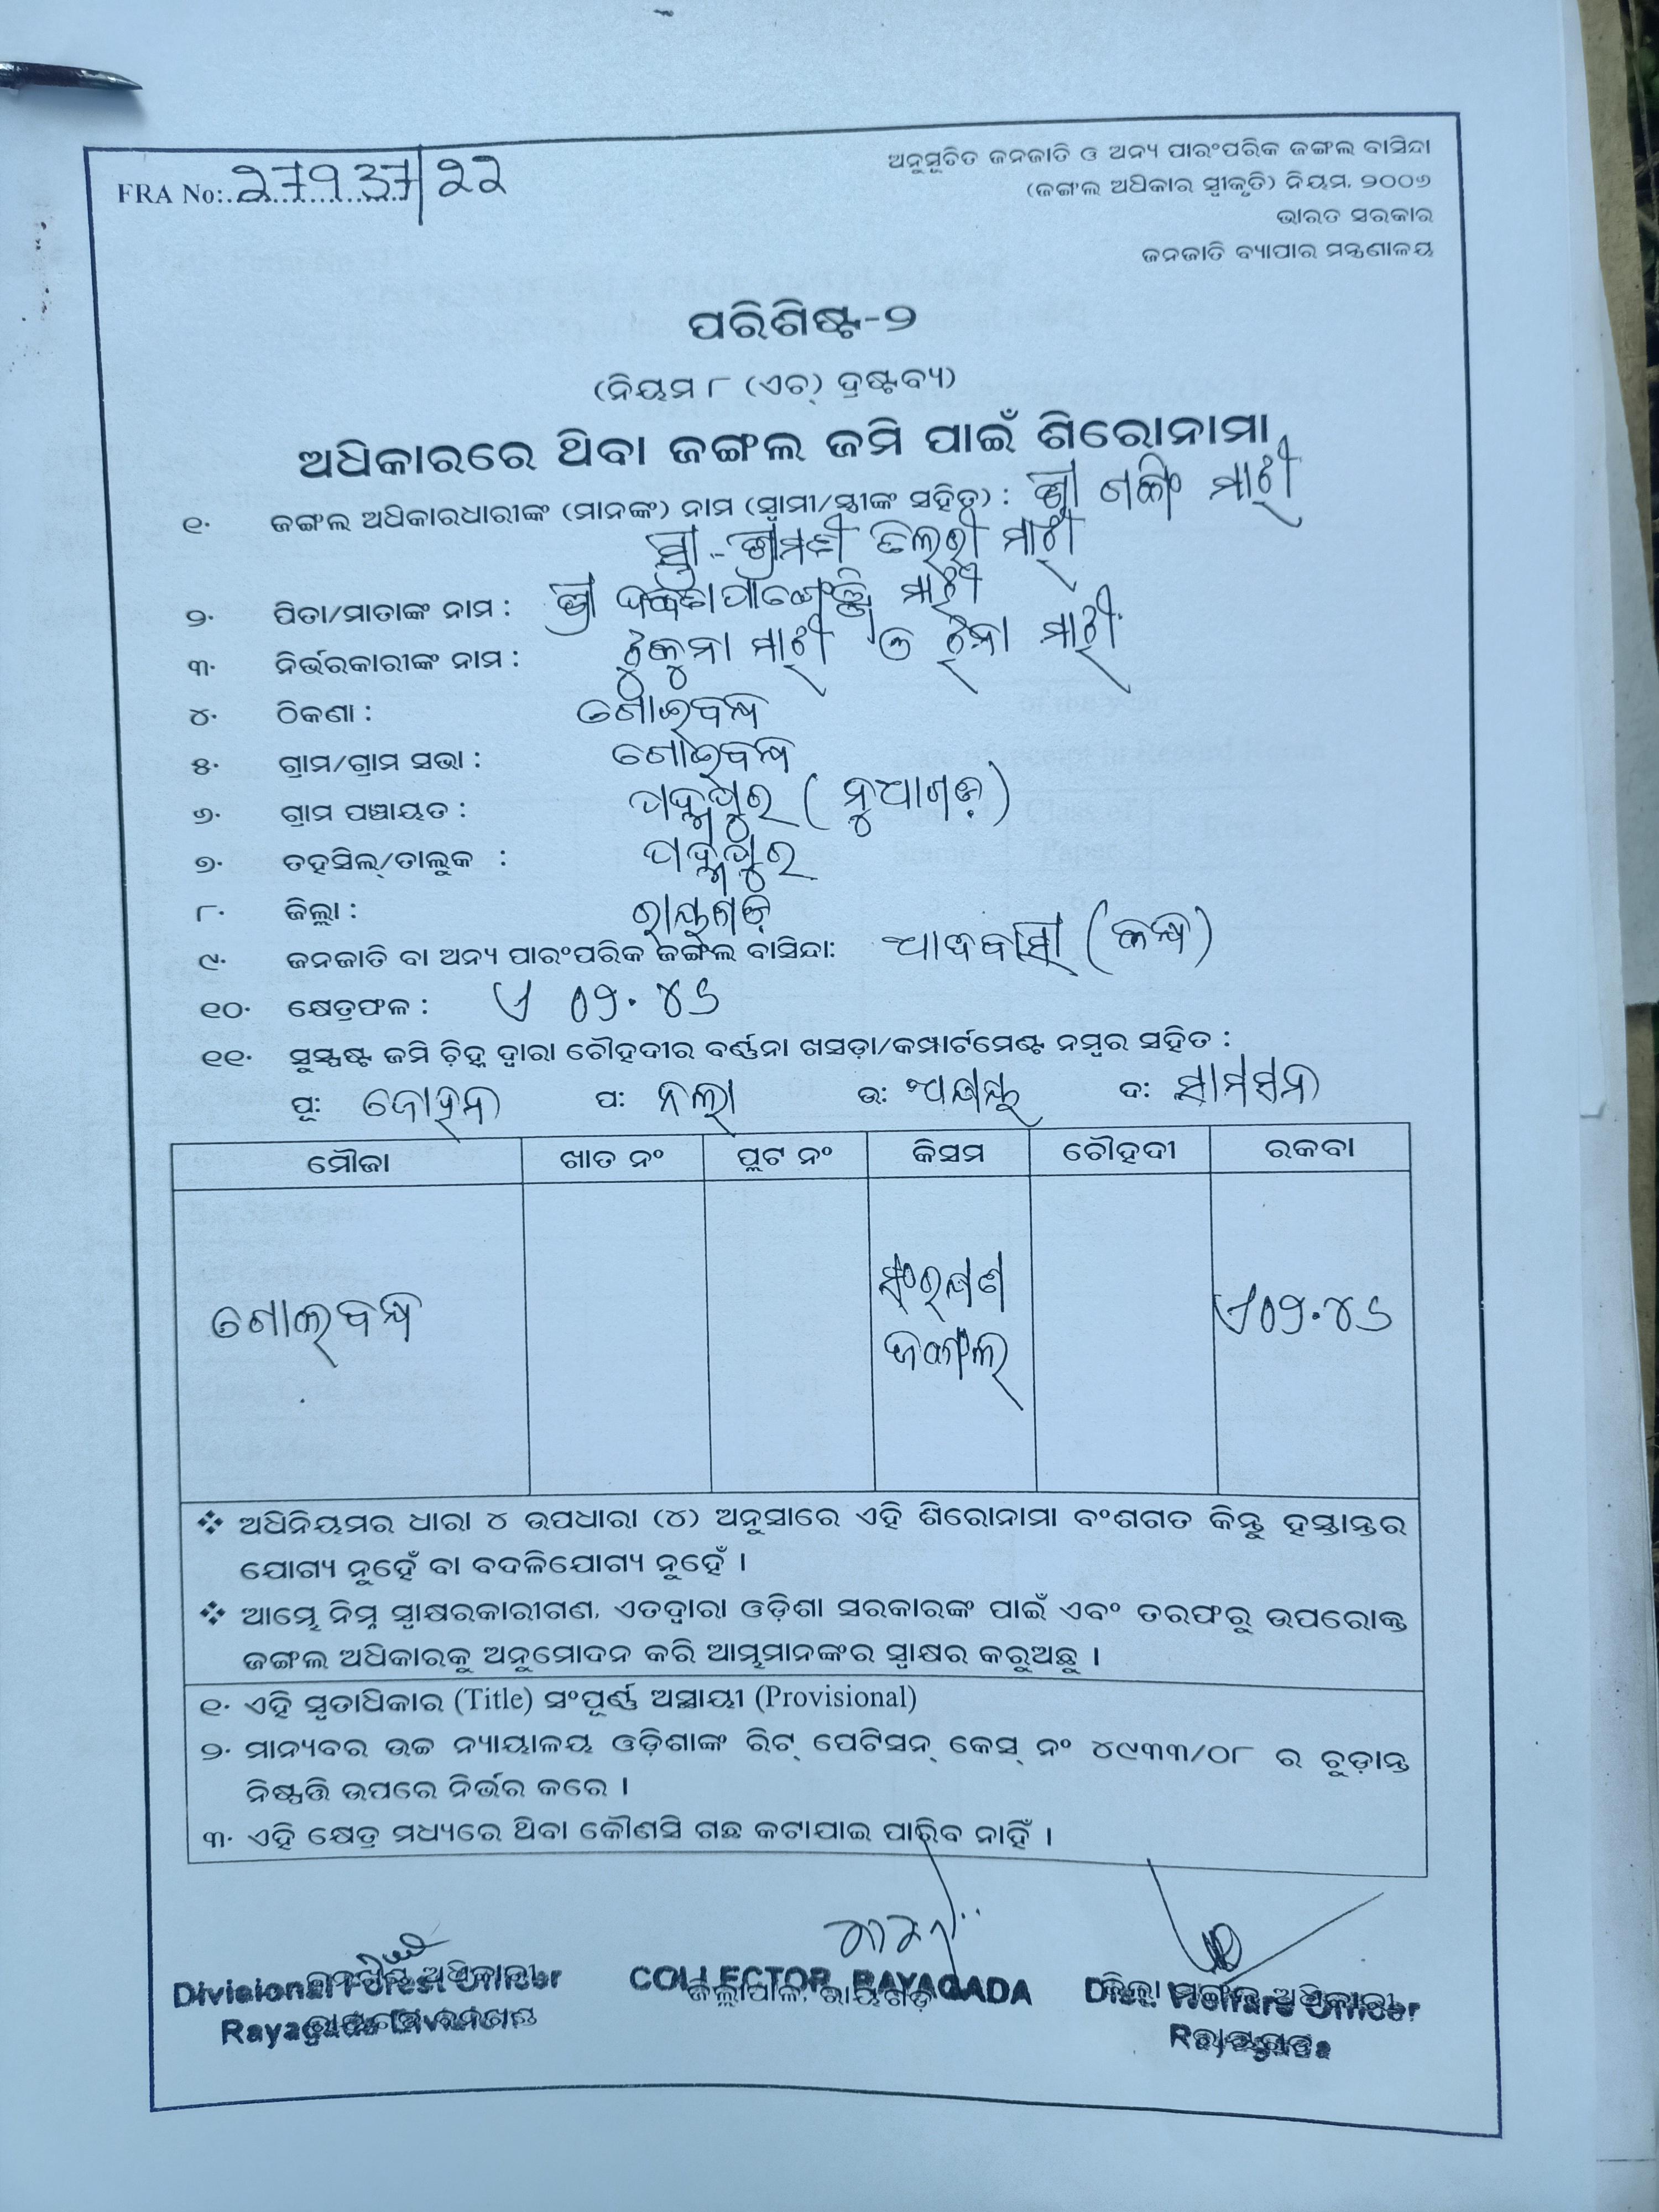 FRA No:. 27937/22
ଅନୁସୂଚିତ ଜନଜାତି ଓ ଅନ୍ୟ ପାରଂପରିକ ଜଙ୍ଗଲ ବାସିନ୍ଦା
(ଜଙ୍ଗଲ ଅଧିକାର ସ୍ୱୀକୃତି) ନିୟମ, ୨୦୦୬
ଭାରତ ସରକାର
ଜନଜାତି ବ୍ୟାପାର ମନ୍ତ୍ରଣାଳୟ
ପରିଶିଷ୍ଟ-୨
(ନିୟମ ୮ (ଏଚ୍) ଦ୍ରଷ୍ଟବ୍ୟ)
ଅଧିକାରରେ ଥିବା ଜଙ୍ଗଲ ଜମି ପାଇଁ ଶିରୋନାମା
୧. ଜଙ୍ଗଲ ଅଧିକାରଧାରୀଙ୍କ (ମାନଙ୍କ) ନାମ (ସ୍ୱାମୀ/ସ୍ତ୍ରୀଙ୍କ ସହିତ) : ଶ୍ରୀ ମାଝୀ
ସ୍ତ୍ରୀ - ଶ୍ରୀମତୀ ମାଝୀ
୨. ପିତା/ମାତାଙ୍କ ନାମ : ଶ୍ରୀ ମାଝୀ
୩. ନିର୍ଭରକାରୀଙ୍କ ନାମ : ମାଝୀ ଓ ମାଝୀ
୪. ଠିକଣା :
୫. ଗ୍ରାମ/ଗ୍ରାମ ସଭା :
୬. ଗ୍ରାମ ପଞ୍ଚାୟତ : ପଦ୍ମପୁର (ନୁଆଗଡ଼)
୭. ତହସିଲ୍/ତାଲୁକ : ପଦ୍ମପୁର
୮. ଜିଲ୍ଲା : ରାୟଗଡ଼
୯. ଜନଜାତି ବା ଅନ୍ୟ ପାରଂପରିକ ଜଙ୍ଗଲ ବାସିନ୍ଦା: ଆଦିବାସୀ (କନ୍ଧ)
୧୦. କ୍ଷେତ୍ରଫଳ :
୧୧. ସୁସ୍ପଷ୍ଟ ଜମି ଚିହ୍ନ ଦ୍ୱାରା ଚୌହଦୀର ବର୍ଣ୍ଣନା ଖସଡ଼ା/କମ୍ପାର୍ଟମେଣ୍ଟ ନମ୍ବର ସହିତ :
ପୂ: ଜୋହନ ପ: ନଳା ଉ: ଦ: ସାମସନ
ମୌଜା ଖାତ ନଂ ପ୍ଲଟ ନଂ କିସମ ଚୌହଦୀ ରକବା
ସଂରକ୍ଷଣ
ଜଙ୍ଗଲ
❖ ଅଧିନିୟମର ଧାରା ୪ ଉପଧାରା (୪) ଅନୁସାରେ ଏହି ଶିରୋନାମା ବଂଶଗତ କିନ୍ତୁ ହସ୍ତାନ୍ତର
ଯୋଗ୍ୟ ନୁହେଁ ବା ବଦଳିଯୋଗ୍ୟ ନୁହେଁ ।
❖ ଆମ୍ଭେ ନିମ୍ନ ସ୍ୱାକ୍ଷରକାରୀଗଣ, ଏତଦ୍ୱାରା ଓଡ଼ିଶା ସରକାରଙ୍କ ପାଇଁ ଏବଂ ତରଫରୁ ଉପରୋକ୍ତ
ଜଙ୍ଗଲ ଅଧିକାରକୁ ଅନୁମୋଦନ କରି ଆମ୍ଭମାନଙ୍କର ସ୍ୱାକ୍ଷର କରୁଅଛୁ ।
୧. ଏହି ସ୍ୱତାଧିକାର (Title) ସଂପୂର୍ଣ୍ଣ ଅସ୍ଥାୟୀ (Provisional)
୨. ମାନ୍ୟବର ଉଚ୍ଚ ନ୍ୟାୟାଳୟ ଓଡ଼ିଶାଙ୍କ ରିଟ୍ ପେଟିସନ୍ କେସ୍ ନଂ ୪୯୩୩/୦୮ ର ଚୁଡ଼ାନ୍ତ
ନିଷ୍ପତ୍ତି ଉପରେ ନିର୍ଭର କରେ ।
୩. ଏହି କ୍ଷେତ୍ର ମଧ୍ୟରେ ଥିବା କୌଣସି ଗଛ କଟାଯାଇ ପାରିବ ନାହିଁ ।
Divisional Forest Officer COLLECTOR, RAYAGADA Dist. Welfare Officer
ଜିଲ୍ଲାପାଳ, ରାୟଗଡ଼ ଜିଲ୍ଲା ମଙ୍ଗଳ ଅଧିକାରୀ
Rayagada Division Rayagada